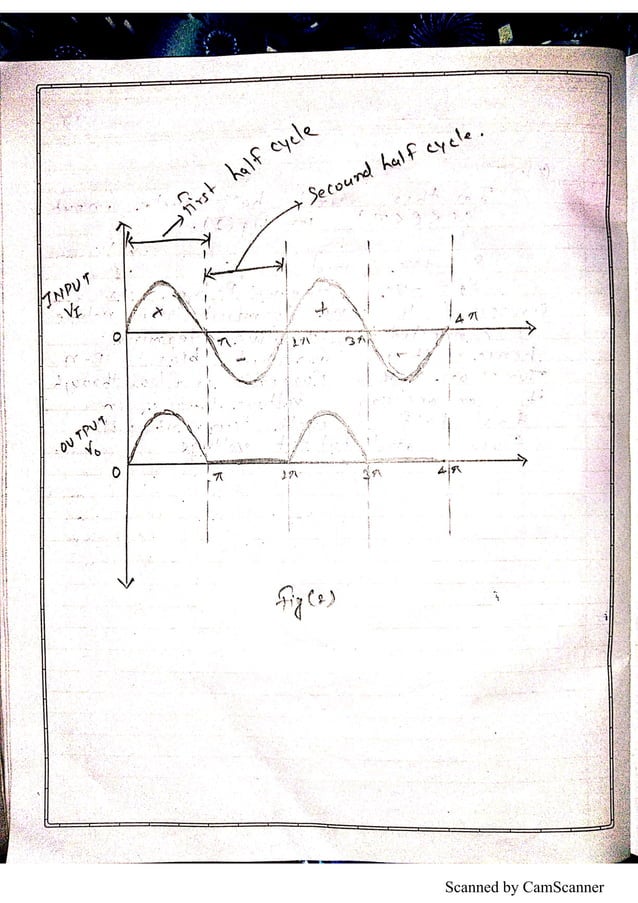 First half cycle
Secound half cycle.
INPUT
VI
+ +
0 π - 2π 3π - 4π
OUTPUT
Vo
0 π 2π 3π 4π
Scanned by CamScanner